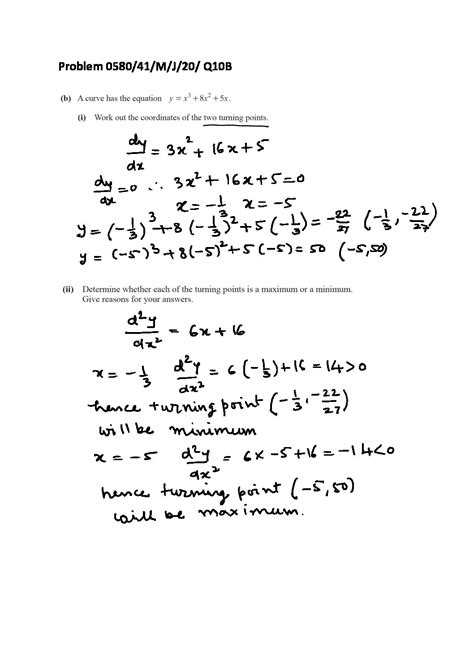 Problem 0580/41/M/J/20/ Q10B
(b) A curve has the equation y = x³ + 8x² + 5x.
(i) Work out the coordinates of the two turning points.
dy/dx = 3x² + 16x + 5
dy/dx = 0 ∴ 3x² + 16x + 5 = 0
x = -1/3 x = -5
y = (-1/3)³ + 8(-1/3)² + 5(-1/3) = -22/27 (-1/3, -22/27)
y = (-5)³ + 8(-5)² + 5(-5) = 50 (-5, 50)
(ii) Determine whether each of the turning points is a maximum or a minimum.
Give reasons for your answers.
d²y/dx² = 6x + 16
x = -1/3 d²y/dx² = 6(-1/3) + 16 = 14 > 0
hence turning point (-1/3, -22/27)
will be minimum
x = -5 d²y/dx² = 6 x -5 + 16 = -14 < 0
hence turning point (-5, 50)
will be maximum.